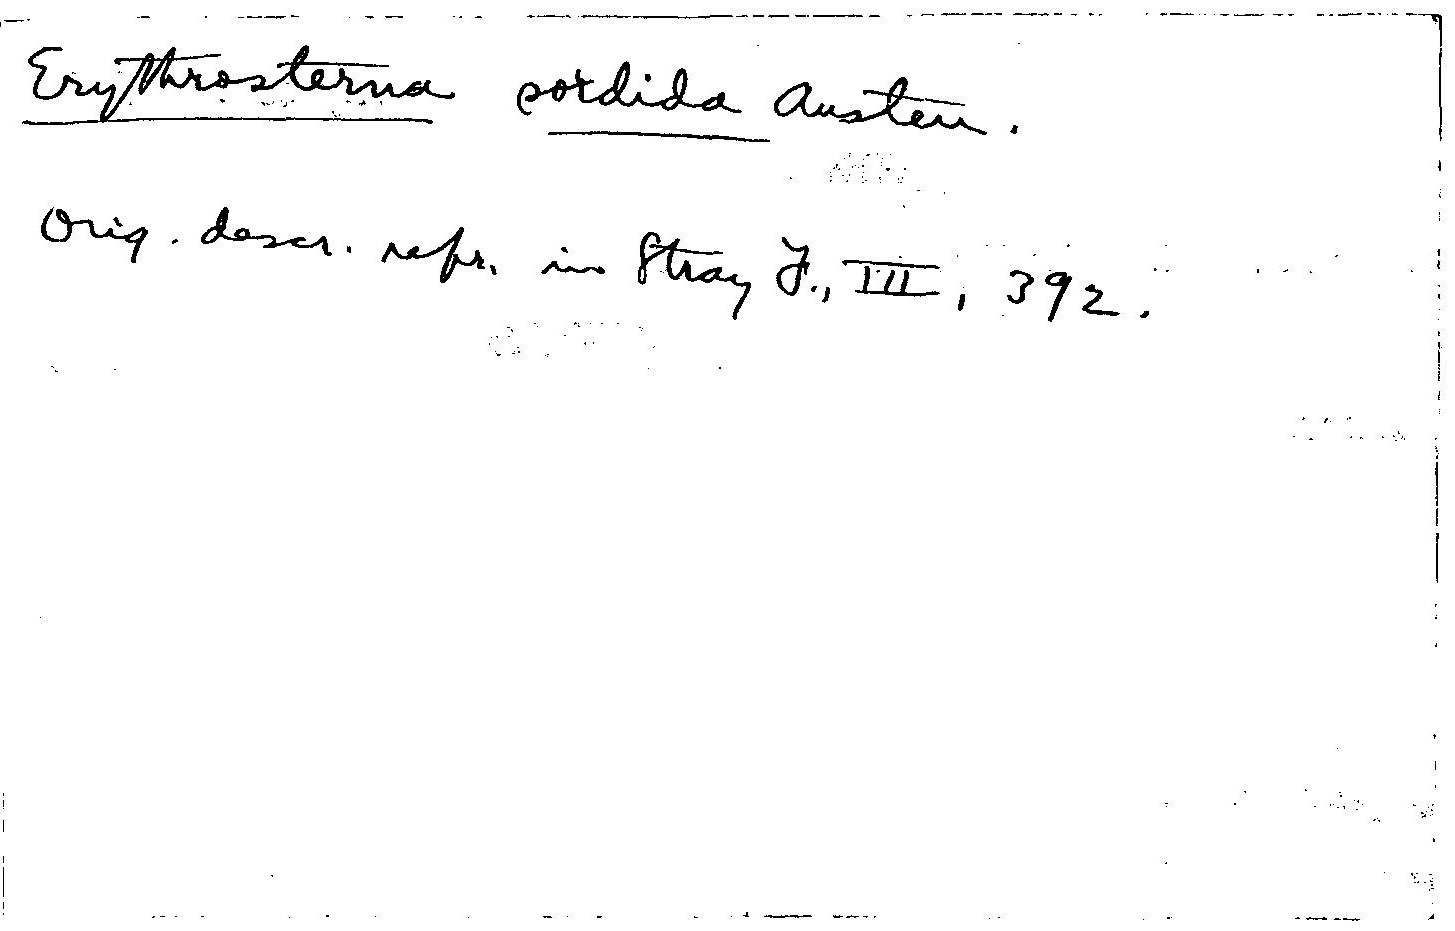 Erythrosterna sordida Austen.
Orig. descr. repr. in Stray F., III, 392.